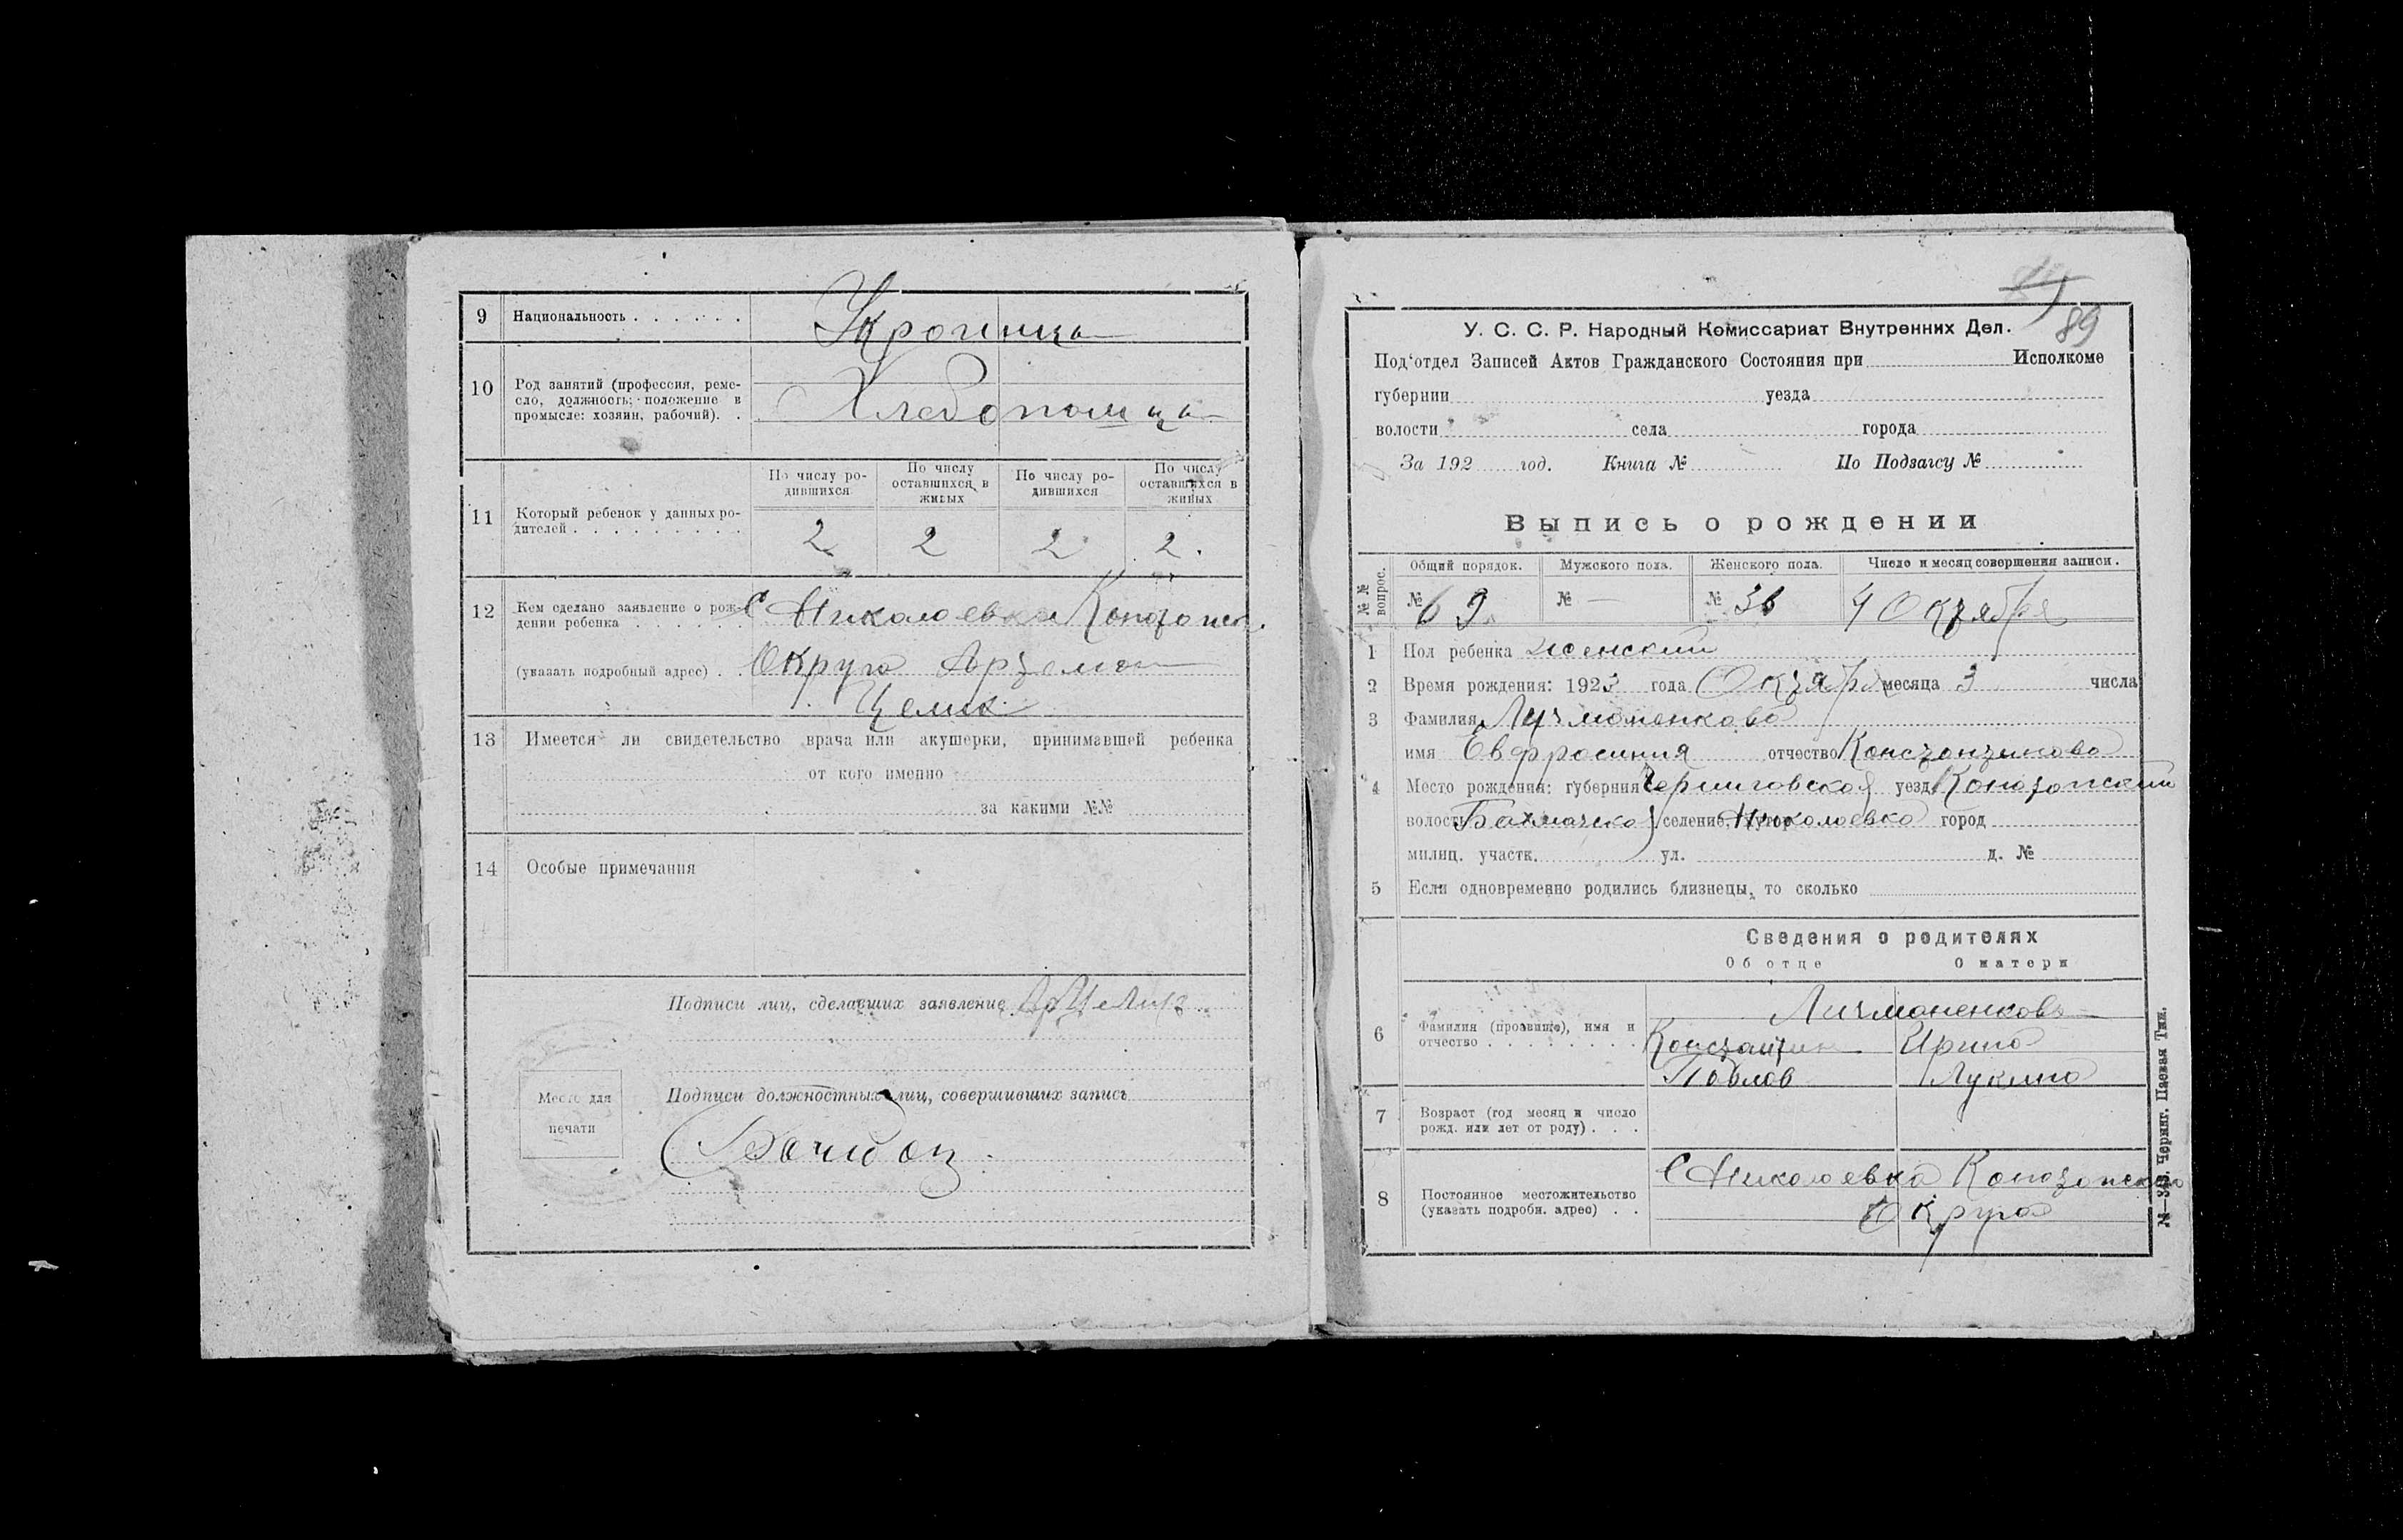 9 Национальность . . . . . . Украинца
10 Род занятий (профессия, реме-
сло, должность; положение в
промысле: хозяин, рабочий). . Хлебопашца
11 Который ребенок у данных ро-
дителей . . . . . . . . .
По числу ро-
дившихся
По числу
оставшихся в
живых
По числу ро-
дившихся
По числу
оставшихся в
живых
2 2 2 2.
12 Кем сделано заявление о рож-
дении ребенка . . . . . . С Николаевка Конотопск.
(указать подробный адрес) . . Округа Артема
Целик
13 Имеется ли свидетельство врача или акушерки, принимавшей ребенка
от кого именно
за какими №№
14 Особые примечания
Подписи лиц, сделавших заявление Ар Целик
Место для
печати
Подписи должностных лиц, совершивших запись
89
У. С. С. Р. Народный Комиссариат Внутренних Дел.
Под'отдел Записей Актов Гражданского Состояния при Исполкоме
губернии уезда
волости села города
За 192 год. Книга № По Подзагсу №
Выпись о рождении
№№ вопрос.
Общий порядок. Мужского пола. Женского пола. Число и месяц совершения записи.
№ 69 № — № 36 4 Октября
1 Пол ребенка женский
2 Время рождения: 1923 года Октября месяца 3 числа
3 Фамилия Лузмоненкова
имя Евфросиния отчество Константинова
4 Место рождения: губерния Черниговская уезд Конотопский
волость Бахмачская селение, хутор Николаевка город
милиц. участк. ул. д. №
5 Если одновременно родились близнецы, то сколько
Сведения о родителях
Об отце О матери
6 Фамилия (прозвище), имя и
отчество . . . . . . . .
Личмоненков
Константин Ирина
Павлов Лукина
7 Возраст (год месяц и число
рожд. или лет от роду) . . .
8 Постоянное местожительство
(указать подробн. адрес) . .
С Николаевка Конотопского
Округа
№—343. Черниг. Паевая Тип.